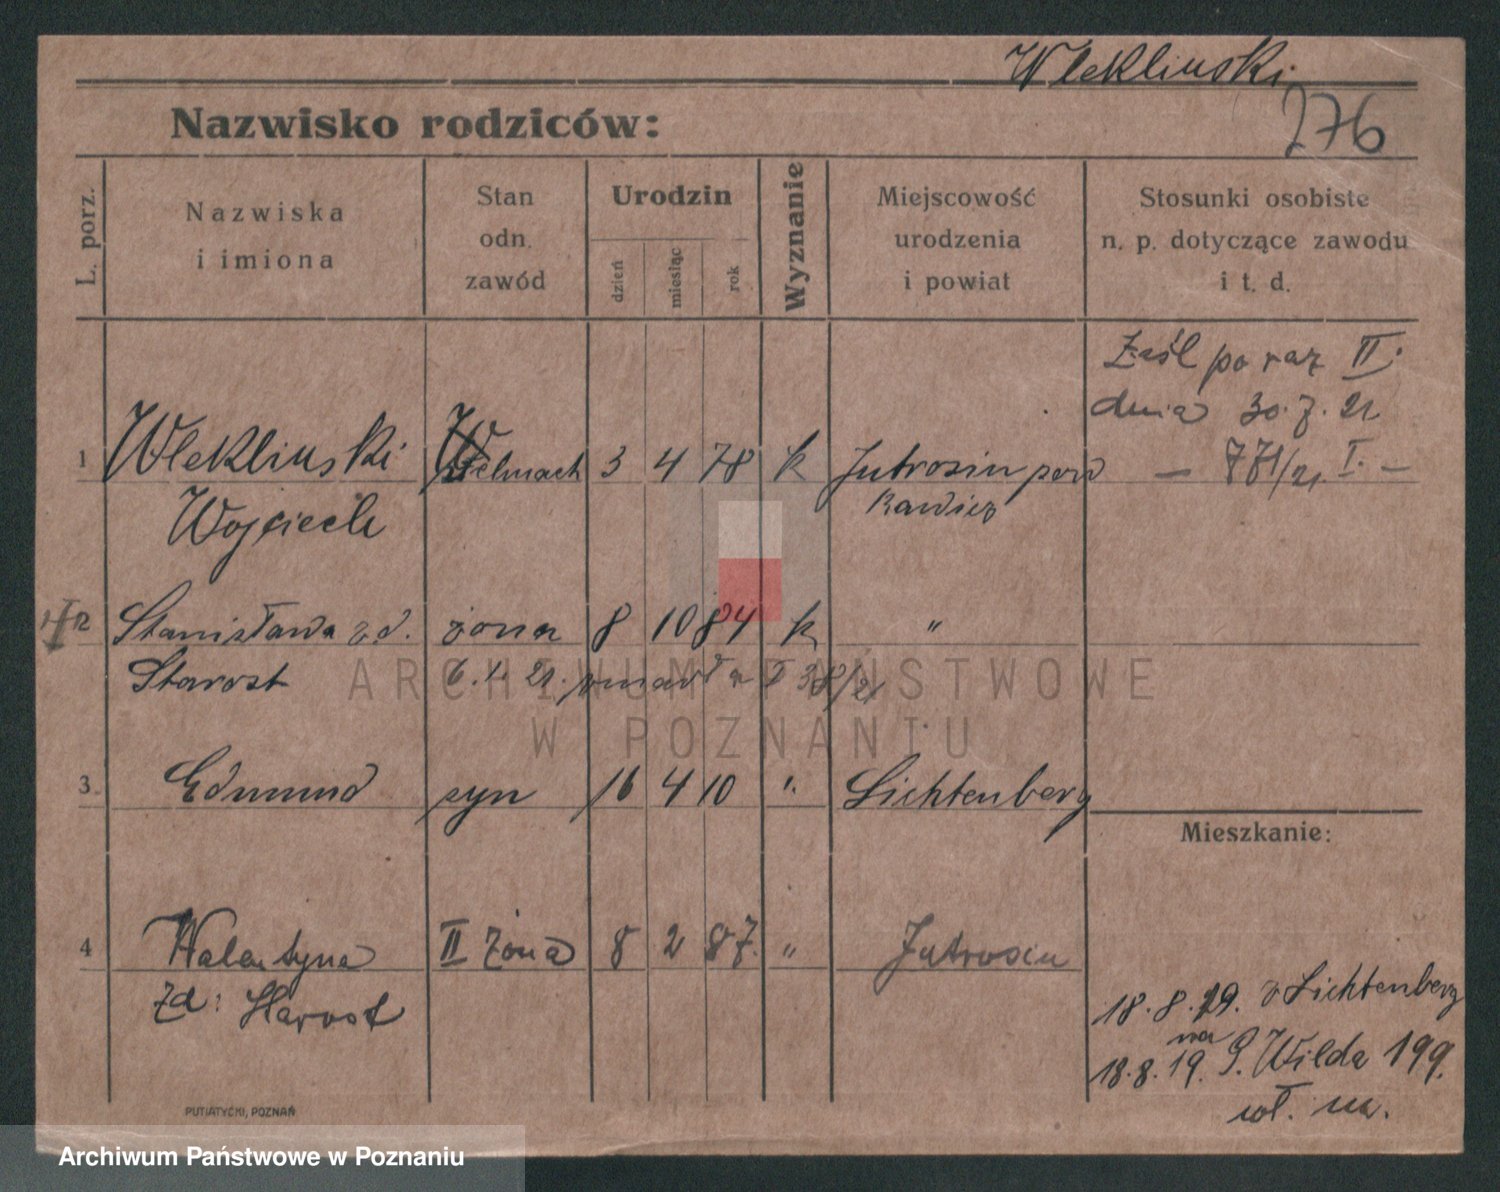 Wleklinski
276
Nazwisko rodziców:
L. porz.
Nazwiska
i imiona
Stan
odn.
zawód
Urodzin
dzień
miesiąc
rok
Wyznanie
Miejscowość
urodzenia
i powiat
Stosunki osobiste
n. p. dotyczące zawodu
i t. d.
Zaśl po raz II.
dnia 30. 7. 21
— 771/21. I. —
1 Wleklinski 3 4 78 k Jutrosin pow
Wojciech Rawicz
2 Stanisława zd. żona 8 10 84 k "
Starost 6. 4. 21. I 38/21
3. Edmund syn 16 4 10 " Lichtenberg
Mieszkanie:
4 Walentyna II żona 8 2 87. " Jutrosin
zd:
18. 8. 19. z Lichtenberg
na
18. 8. 19. G. Wilda 199.
PUTIATYCKI, POZNAŃ
ARCHIWUM PAŃSTWOWE
W POZNANIU
Archiwum Państwowe w Poznaniu